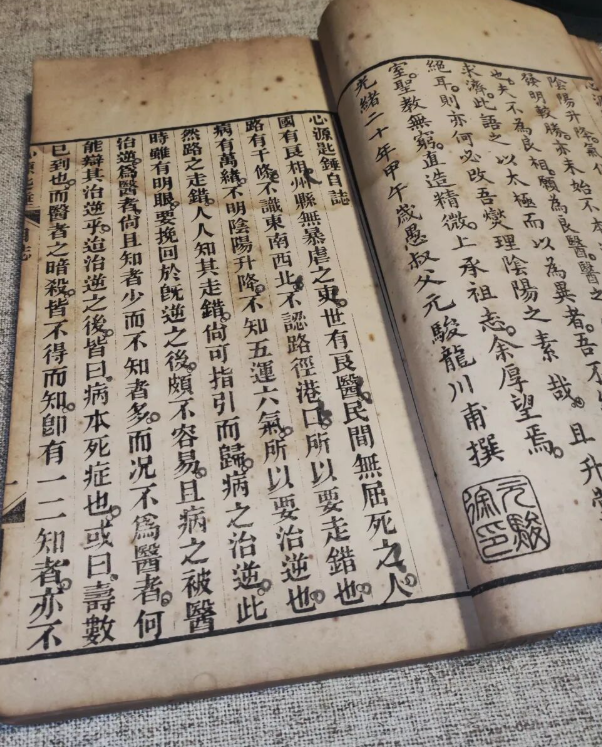 心源
陰陽升降。氣
明較勝。亦未始不本
也。夫不為良相。願為良醫。醫之
求濟。此語之以太極而以為異者。吾不
絕耳。則亦何必改吾燮理陰陽之素哉。且升
室。聖教無窮。直造精微。上承祖志。余厚望焉。
光緒二十年甲午歲愚叔父元駿龍川甫撰
元駿
徐印
心源匙錘自誌
國有良相。州縣無暴虐之吏。世有良醫。民間無屈死之人。
路有千條。不識東南西北。不認路徑港口。所以要走錯也。
病有萬緒。不明陰陽升降。不知五運六氣。所以要治逆也。
然路之走錯。人人知其走錯。尙可指引而歸。病之治逆。此
時雖有明眼。要挽回於旣逆之後。頗不容易。且病之被醫
治逆。爲醫者。尙且知者少而不知者多。而况不爲醫者。何
能辯其治逆乎。迨治逆之後。皆曰。病本死症也。或曰。壽數
已到也。而醫者之暗殺。皆不得而知。卽有一二知者。亦不